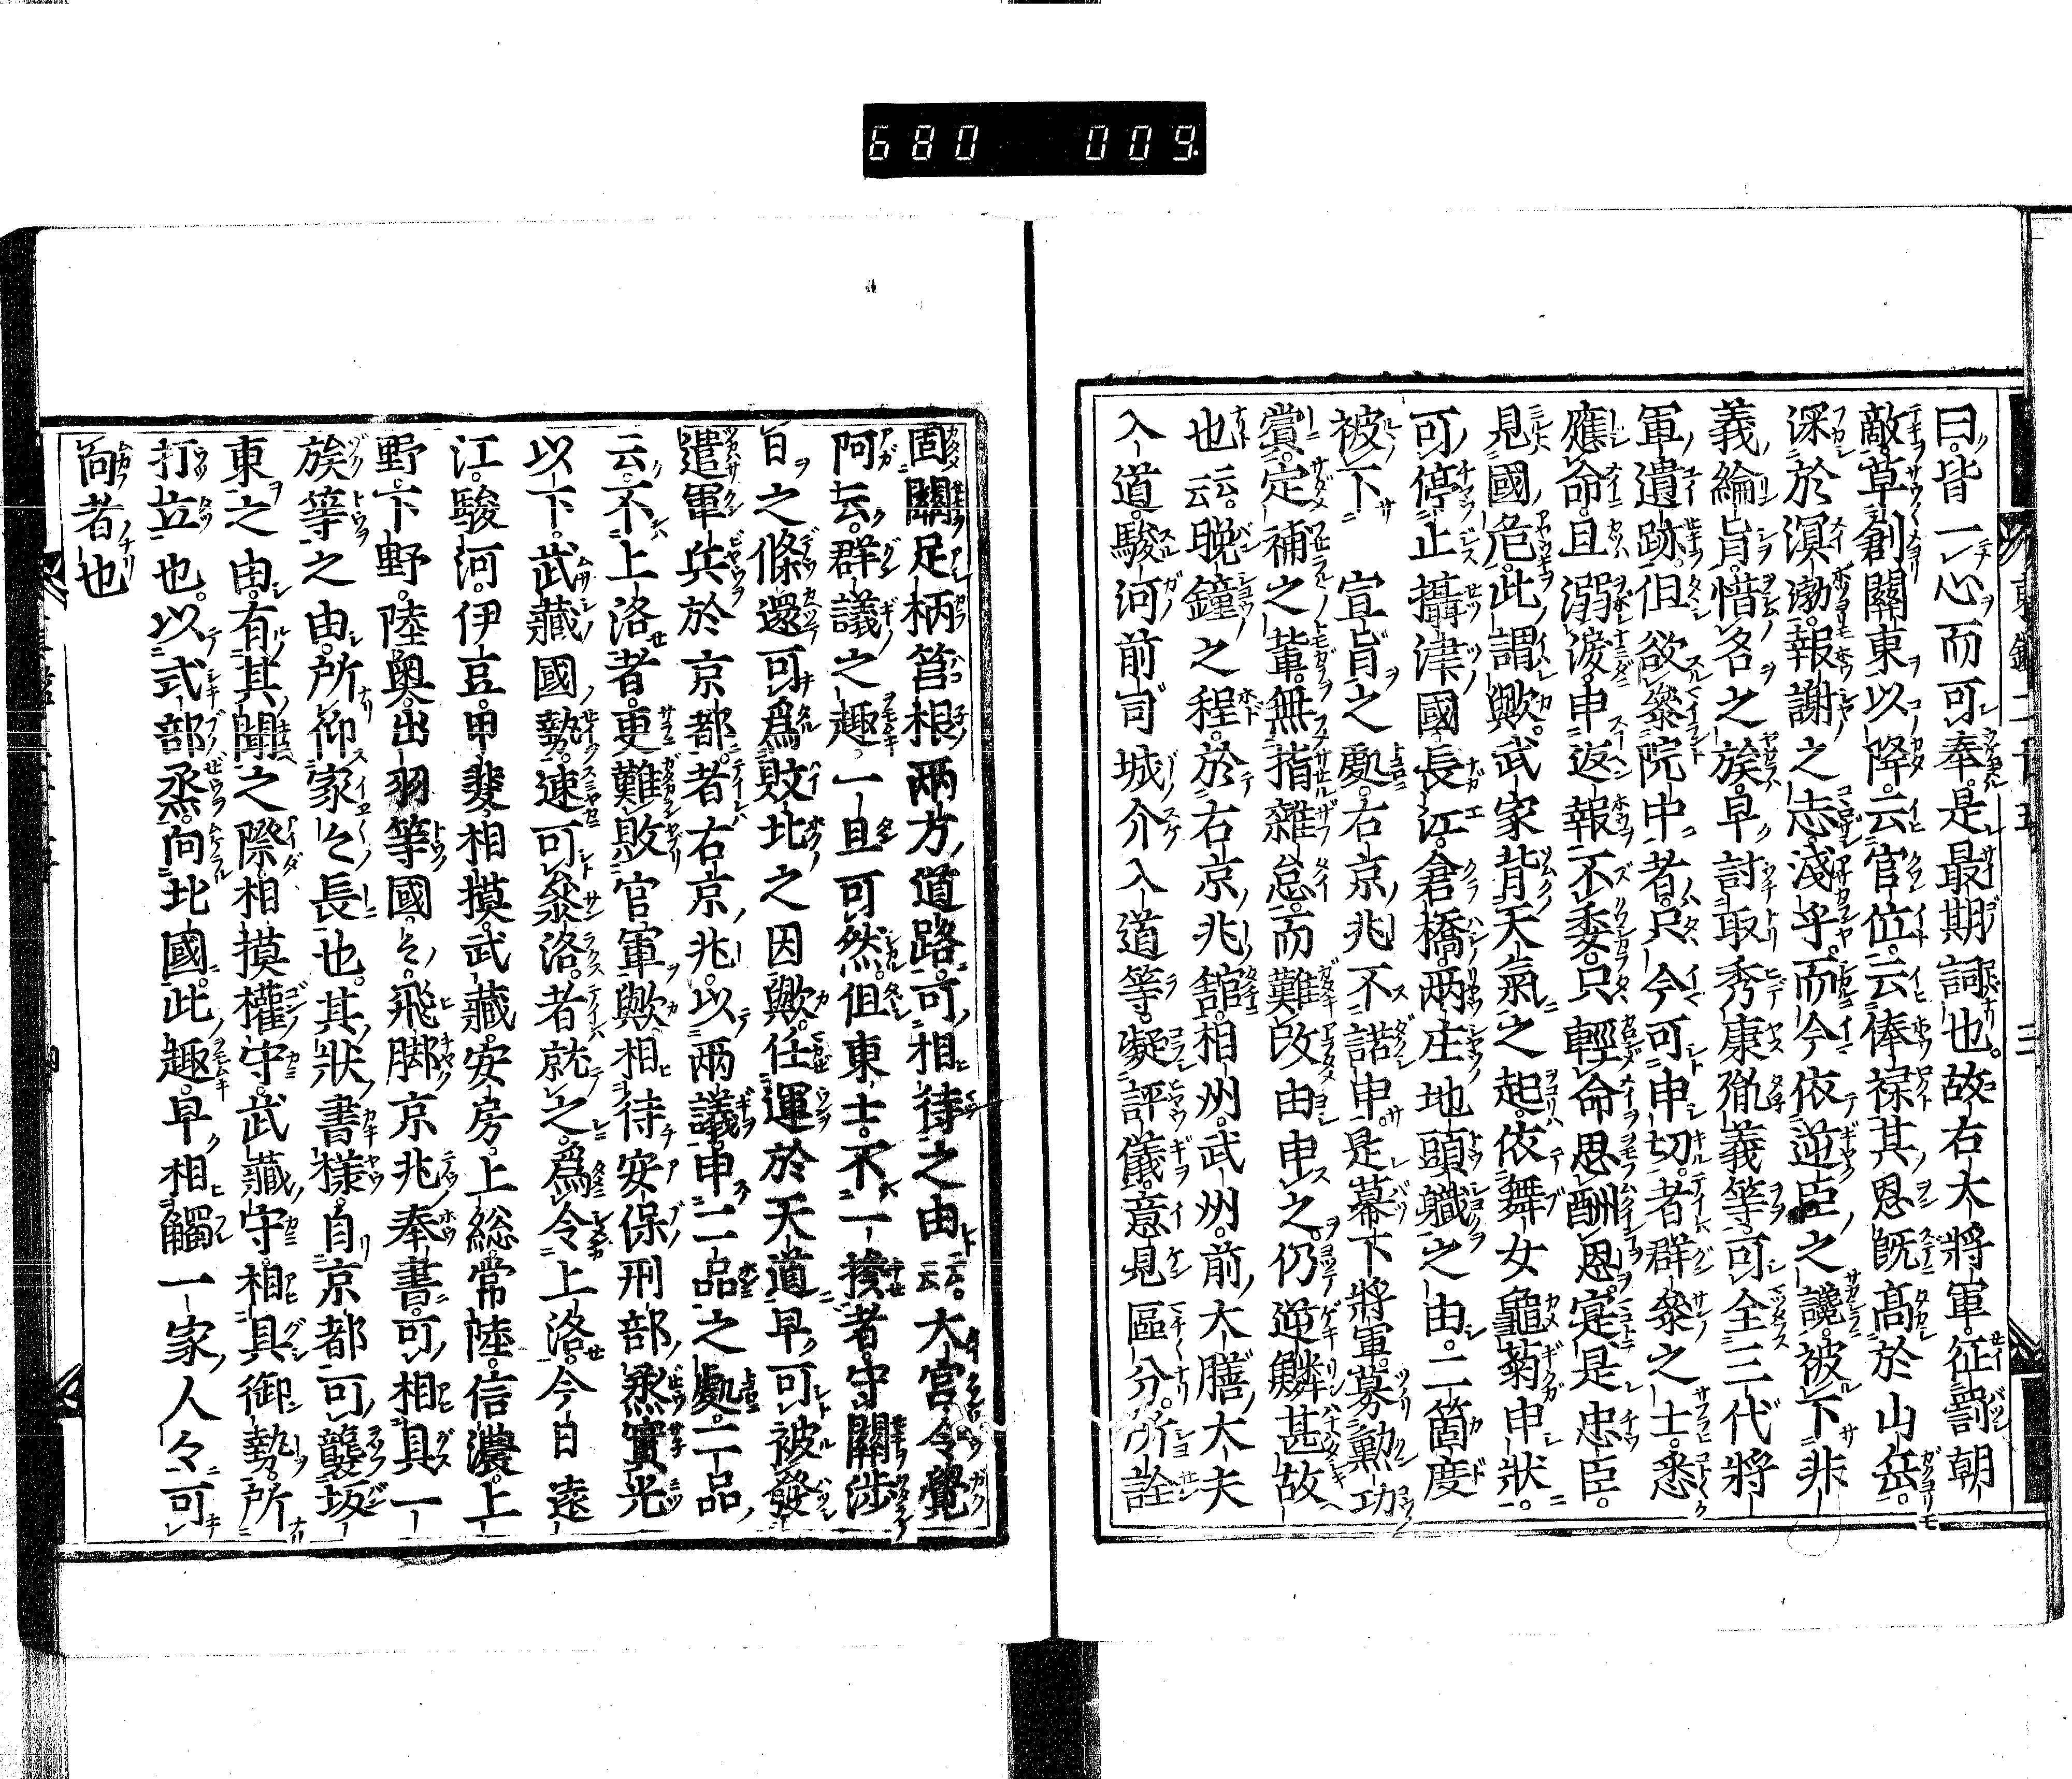 680 009
曰皆一心而可奉是最期詞也故右大將軍征罰朝
敵草創關東以降云官位云俸禄其恩既髙於山岳
深於溟渤報謝之志淺乎而今依逆臣之讒被下非
義綸旨惜名之族早討取秀康胤義等可全三代將
軍遺跡但欲參院中者只今可申切者群參之士悉
應命且溺涙申返報不委只輕命思酬恩寔是忠臣
見國危此謂歟武家背天氣之起依舞女龜菊申狀
可停止攝津國長江倉橋兩庄地頭軄之由二箇度
被下宣旨之處右京兆不諾申是幕下將軍募勲功
賞定補之輩無指雜怠而難改由申之仍逆鱗甚故
也云云晩鐘之程於右京兆舘相州武州前大膳大夫
入道駿河前司城介入道等凝評儀意見區分所詮
固關足柄筥根兩方道路可相待之由云云大官令覺
阿云群議之趣一旦可然但東士不一揆者守關渉
日之條還可爲敗北之因歟任運於天道早可被發
遣軍兵於京都者右京兆以兩議申二品之處二品
云不上洛者更難敗官軍歟相待安保刑部烝實光
以下武藏國勢速可參洛者就之爲令上洛今日遠
江駿河伊豆甲斐相摸武藏安房上総常陸信濃上
野下野陸奥出羽等國々飛脚京兆奉書可相具一
族等之由所仰家々長也其狀書樣自京都可襲坂
東之由有其聞之際相摸權守武藏守相具御勢所
打立也以式部烝向北國此趣早相觸一家人々可
向者也